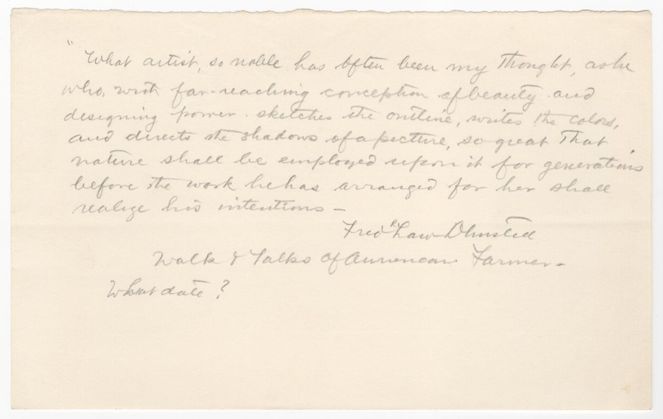 "What artist, so noble has often been my thought, as he
who, with far-reaching conception of beauty and
designing power. sketches the outline, writes the colors,
and directs the shadows of a picture, so great that
nature shall be employed upon it for generations
before the work he has arranged for her shall
realize his intentions -
Fred" Law Olmsted
Walk & Talks of American Farmer -
What date?